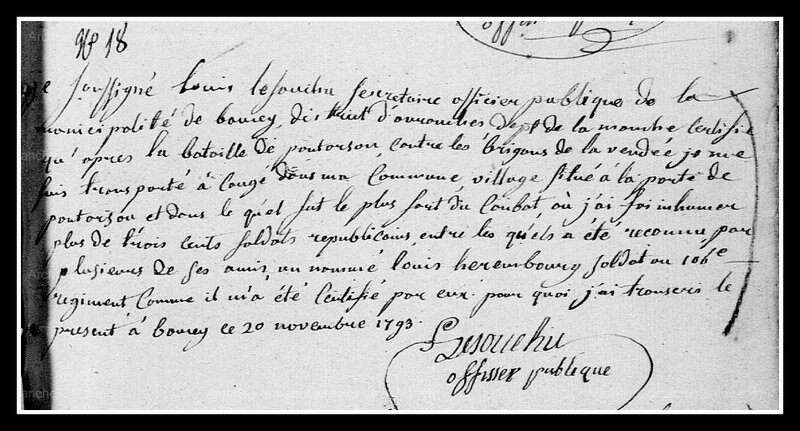 N° 18
offi
je soussigné Louis Lesouchu secretaire officier publique de la
municipalité de boucey, district d'avranches dept de la manche certifie
qu'apres la bataille de pontorson contre les brigans de la vendée je me
suis transporté à Caugé dans ma Commune, village situé à la porte de
pontorson et dans le quel fut le plus fort du Combat, où j'ai fai inhumer
plus de trois cents soldats republicains, entre les quels a été reconnu par
plusieurs de ses amis, un nommé louis herembourg soldat au 106e
regiment Comme il m'a été Certifié par eux. pour quoi j'ai transcris le
present à boucey ce 20 novembre 1793.
Lesouchu
offisser publique